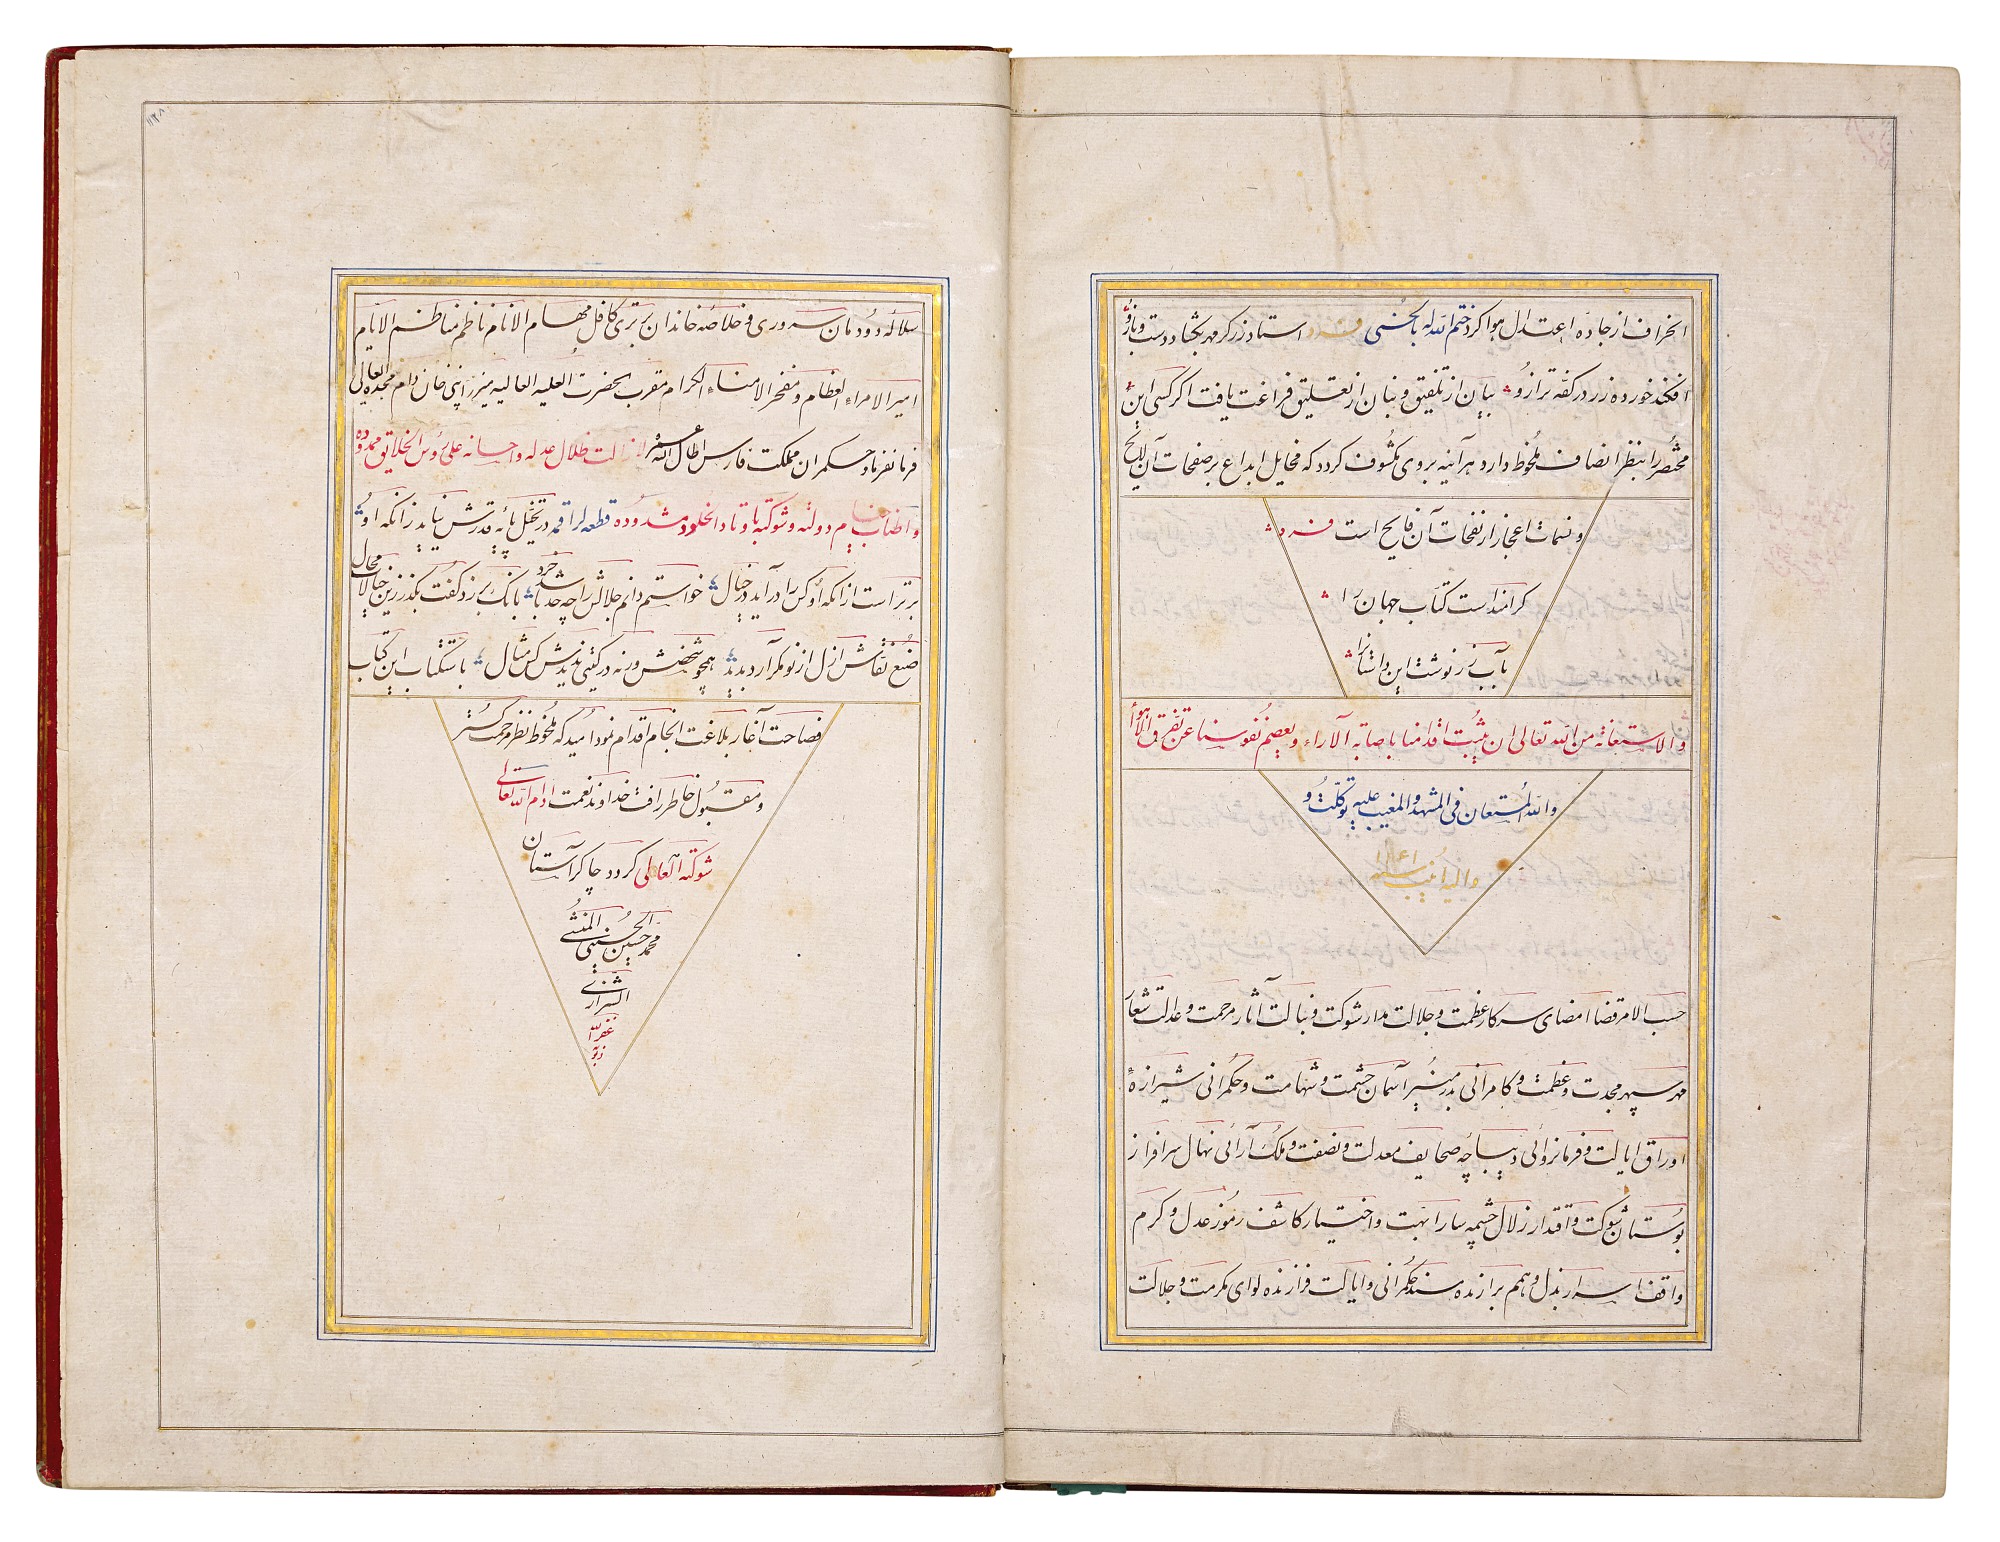 انحراف از جاده اعتدال هوا کرد ختم الله له بالحسنی فرد استاد زرگر مهر بگشاد دست و بازو
افکند خورده زر در کفه ترازو بیان از تلفیق و بنان از تعلیق فراغت یافت اگر کسی این
مختصر را بنظر انصاف ملحوظ دارد هر آینه بر وی مکشوف گردد که مخایل ابداع بر صفحات آن لایح
و نسمات اعجاز از نفحات آن فایح است فرد
کرامند است کتاب جهان را
بآب زر نوشت این داستانرا
والاستعانة من الله تعالی ان یثبت اقدامنا باصابة الآراء و یعصم نفوسنا عن تفرق الاهواء
والله المستعان فی المشهد والمغیب علیه توکلت و
والیه انیب سنه
حسب الامر قضا امضای سرکار عظمت و جلالت مدار شوکت و نبالت آثار مرحمت و عدالت شعار
مهر سپهر مجدت و عظمت و کامرانی بدر منیر آسمان حشمت و شهامت و حکمرانی شیرازه
اوراق ایالت و فرمانروائی دیباچه صحایف معدلت و نصفت و ملک آرائی نهال سرافراز
بوستان شوکت و اقتدار زلال چشمه سار ابهت و اختیار کاشف رموز عدل و کرم
واقف اسرار بذل و همم برازنده مسند حکمرانی و ایالت فرازنده لوای مکرمت و جلالت
سلاله دودمان سروری و خلاصه خاندان برتری کافل مهام الانام ناظم مناظم الایام
امیر الامراء العظام و مفخر الامناء الکرام مقرب الحضرت العلیه العالیه میرزا نبی خان دام مجده العالی
فرمانفرما و حکمران مملکت فارس اطال الله عمره لازالت ظلال عدله و احسانه علی رؤس الخلایق ممدوده
و اطناب خیام دولته و شوکته باوتاد الخلود مشدوده قطعه لراقمه در تخیل پایه قدرش نیاید زانکه او
برتر است از آنکه او کس را درآید در خیال خواستم دانم جلالش را چه حد باشد خرد بانک برزد گفت بگذر زین خیالات محال
صنع نقاش ازل از نو مگر آرد بدید همچو شخصش ورنه در گیتی ندیدش کس مثال باستکتاب این کتاب
فصاحت آغاز بلاغت انجام اقدام نمود امید که ملحوظ نظر مرحمت گستر
و مقبول خاطر رافت خداوند نعمت ادام الله تعالی
شوکته العالی گردد چاکر آستان
محمد حسین الحسینی المنشی
الشیرازی
غفر الله
ذنوبه